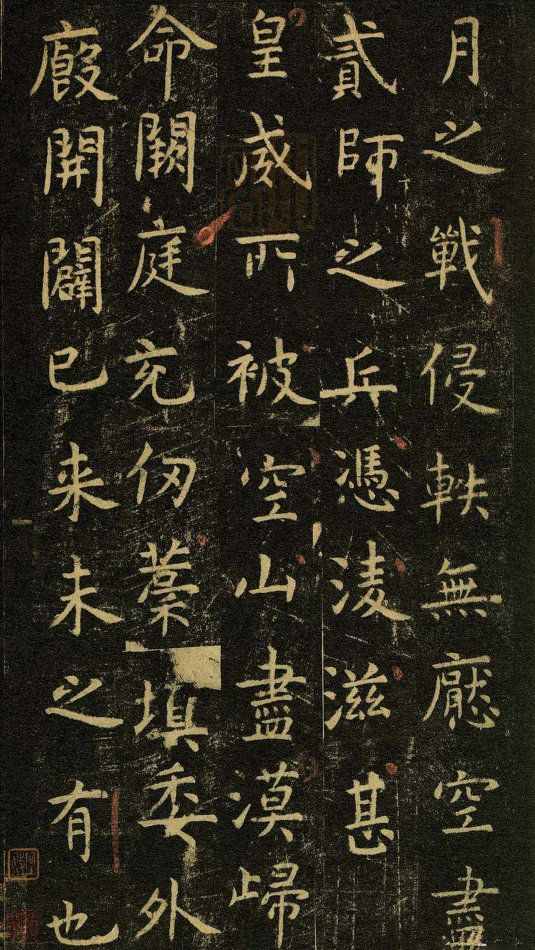 月之戰侵軼無懕空盡
貳師之兵憑淩滋甚
皇威所被空山盡漠歸
命闕庭充仞藁填委外
廄開闢已来未之有也